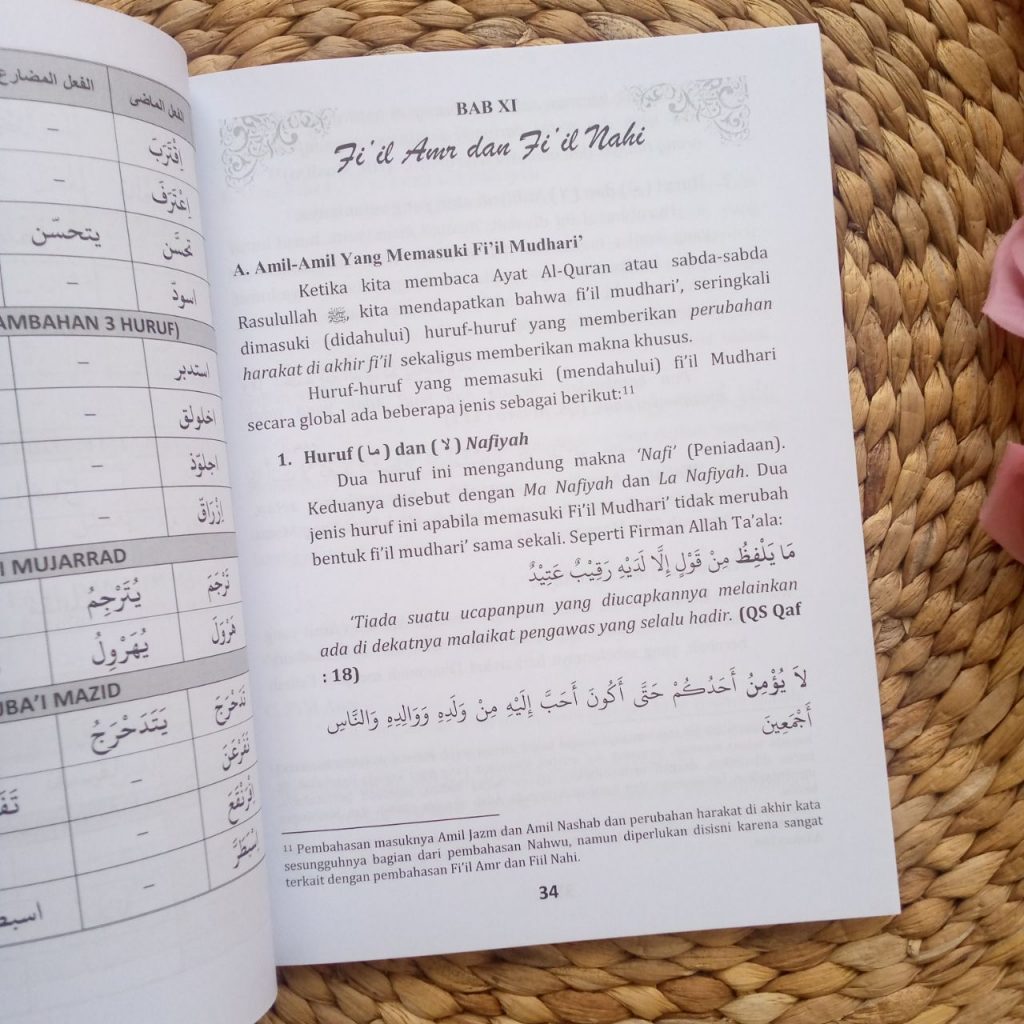 الفعل الماضى الفعل المضارع
إِقْتَرَبَ –
اِعْتَرَفَ –
تحسَّن يتحسّن
اسودّ –
AMBAHAN 3 HURUF)
استدبر –
اخلولق –
اجلوّذ –
اِزْرَاقّ –
I MUJARRAD
تَرْجَمَ يُتَرْجِمُ
هَرْوَلَ يُهَرْوِلُ
UBA'I MAZID
تَدَحْرَجَ يَتَدَحْرَجُ
تَفَرْعَنَ –
اِفْرَنْقَعَ –
اِسْبَطَرَّ –
BAB XI
Fi'il Amr dan Fi'il Nahi
A. Amil-Amil Yang Memasuki Fi'il Mudhari'
Ketika kita membaca Ayat Al-Quran atau sabda-sabda
Rasulullah ﷺ, kita mendapatkan bahwa fi'il mudhari', seringkali
dimasuki (didahului) huruf-huruf yang memberikan perubahan
harakat di akhir fi'il sekaligus memberikan makna khusus.
Huruf-huruf yang memasuki (mendahului) fi'il Mudhari
secara global ada beberapa jenis sebagai berikut:¹¹
1. Huruf ( ما ) dan ( لا ) Nafiyah
Dua huruf ini mengandung makna 'Nafi' (Peniadaan).
Keduanya disebut dengan Ma Nafiyah dan La Nafiyah. Dua
jenis huruf ini apabila memasuki Fi'il Mudhari' tidak merubah
bentuk fi'il mudhari' sama sekali. Seperti Firman Allah Ta'ala:
مَا يَلْفِظُ مِنْ قَوْلٍ إِلَّا لَدَيْهِ رَقِيْبٌ عَتِيْدٌ
'Tiada suatu ucapanpun yang diucapkannya melainkan
ada di dekatnya malaikat pengawas yang selalu hadir. (QS Qaf
: 18)
لاَ يُؤْمِنُ أَحَدُكُمْ حَتَّى أَكُونَ أَحَبَّ إِلَيْهِ مِنْ وَلَدِهِ وَوَالِدِهِ وَالنَّاسِ
أَجْمَعِينَ
¹¹ Pembahasan masuknya Amil Jazm dan Amil Nashab dan perubahan harakat di akhir kata
sesungguhnya bagian dari pembahasan Nahwu, namun diperlukan disisni karena sangat
terkait dengan pembahasan Fi'il Amr dan Fiil Nahi.
34